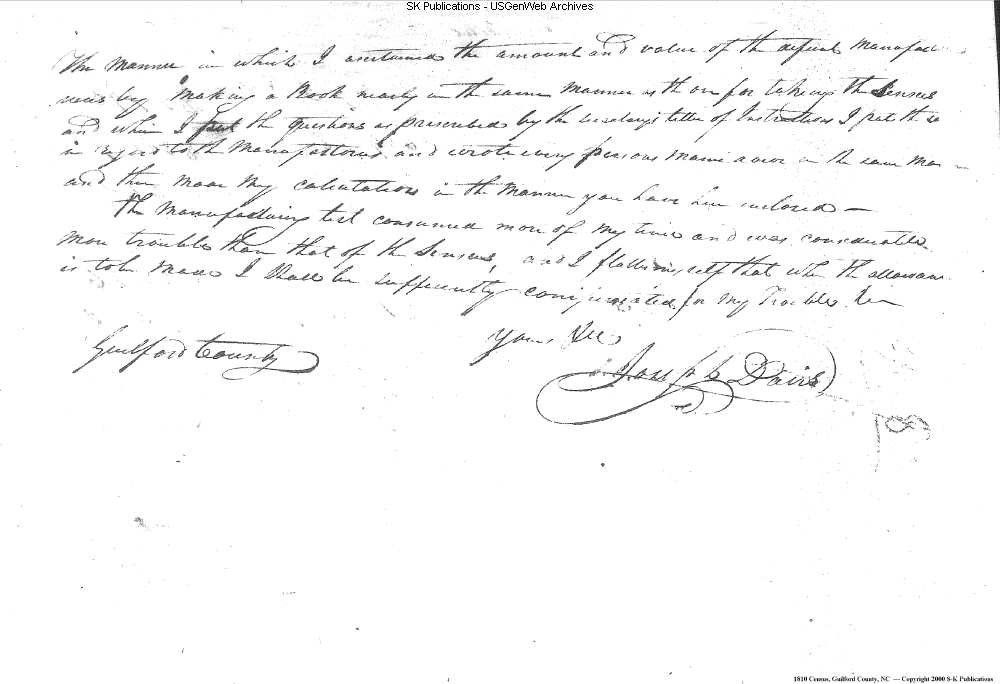 SK Publications - USGenWeb Archives
The manner in which I ascertained the amount and value of the different Manufac
was by making a Book nearly in the same manner as the one for taking the Census
and when I put the questions as prescribed by the letter of Instructions I put the
in regard to the Manufactories and wrote every persons name down in the same man
and then made my calculations in the manner you have here inclosed —
The Manufacturing list consumed more of my time and was considerable
more trouble than that of the Census, and I flatter myself that when the allowance
is to be made I shall be sufficiently for my Trouble
Guilford County
Yours &c
Joseph Davis
1810 Census, Guilford County, NC — Copyright 2000 S-K Publications